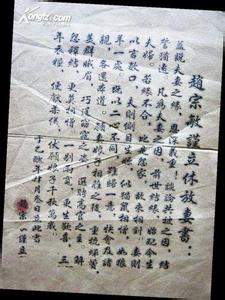 趙宗敏謹立休放妻書:
蓋說夫妻之緣,恩深義重,談論共被之因,結
誓幽遠。凡為夫妻之因,前世結緣,始配今生
夫婦。若緣不合,比是怨家,故來相對,妻則
一言數口,夫則側目生嫌,似猫鼠相憎,如狼
羊一處。既以二心不同,難歸一意,快會及諸
親,各還本道。願娘子相離之後,重梳蟬鬢,
美掃娥眉,巧逞窈窕之姿,選聘高官之主。解
怨釋結,更莫相憎。一別兩寬,各生歡喜。三
年衣糧,便獻柔儀。伏願娘子千秋萬歲。
年肆月叁日 此書
趙宗 謹立
KONGFZ.COM